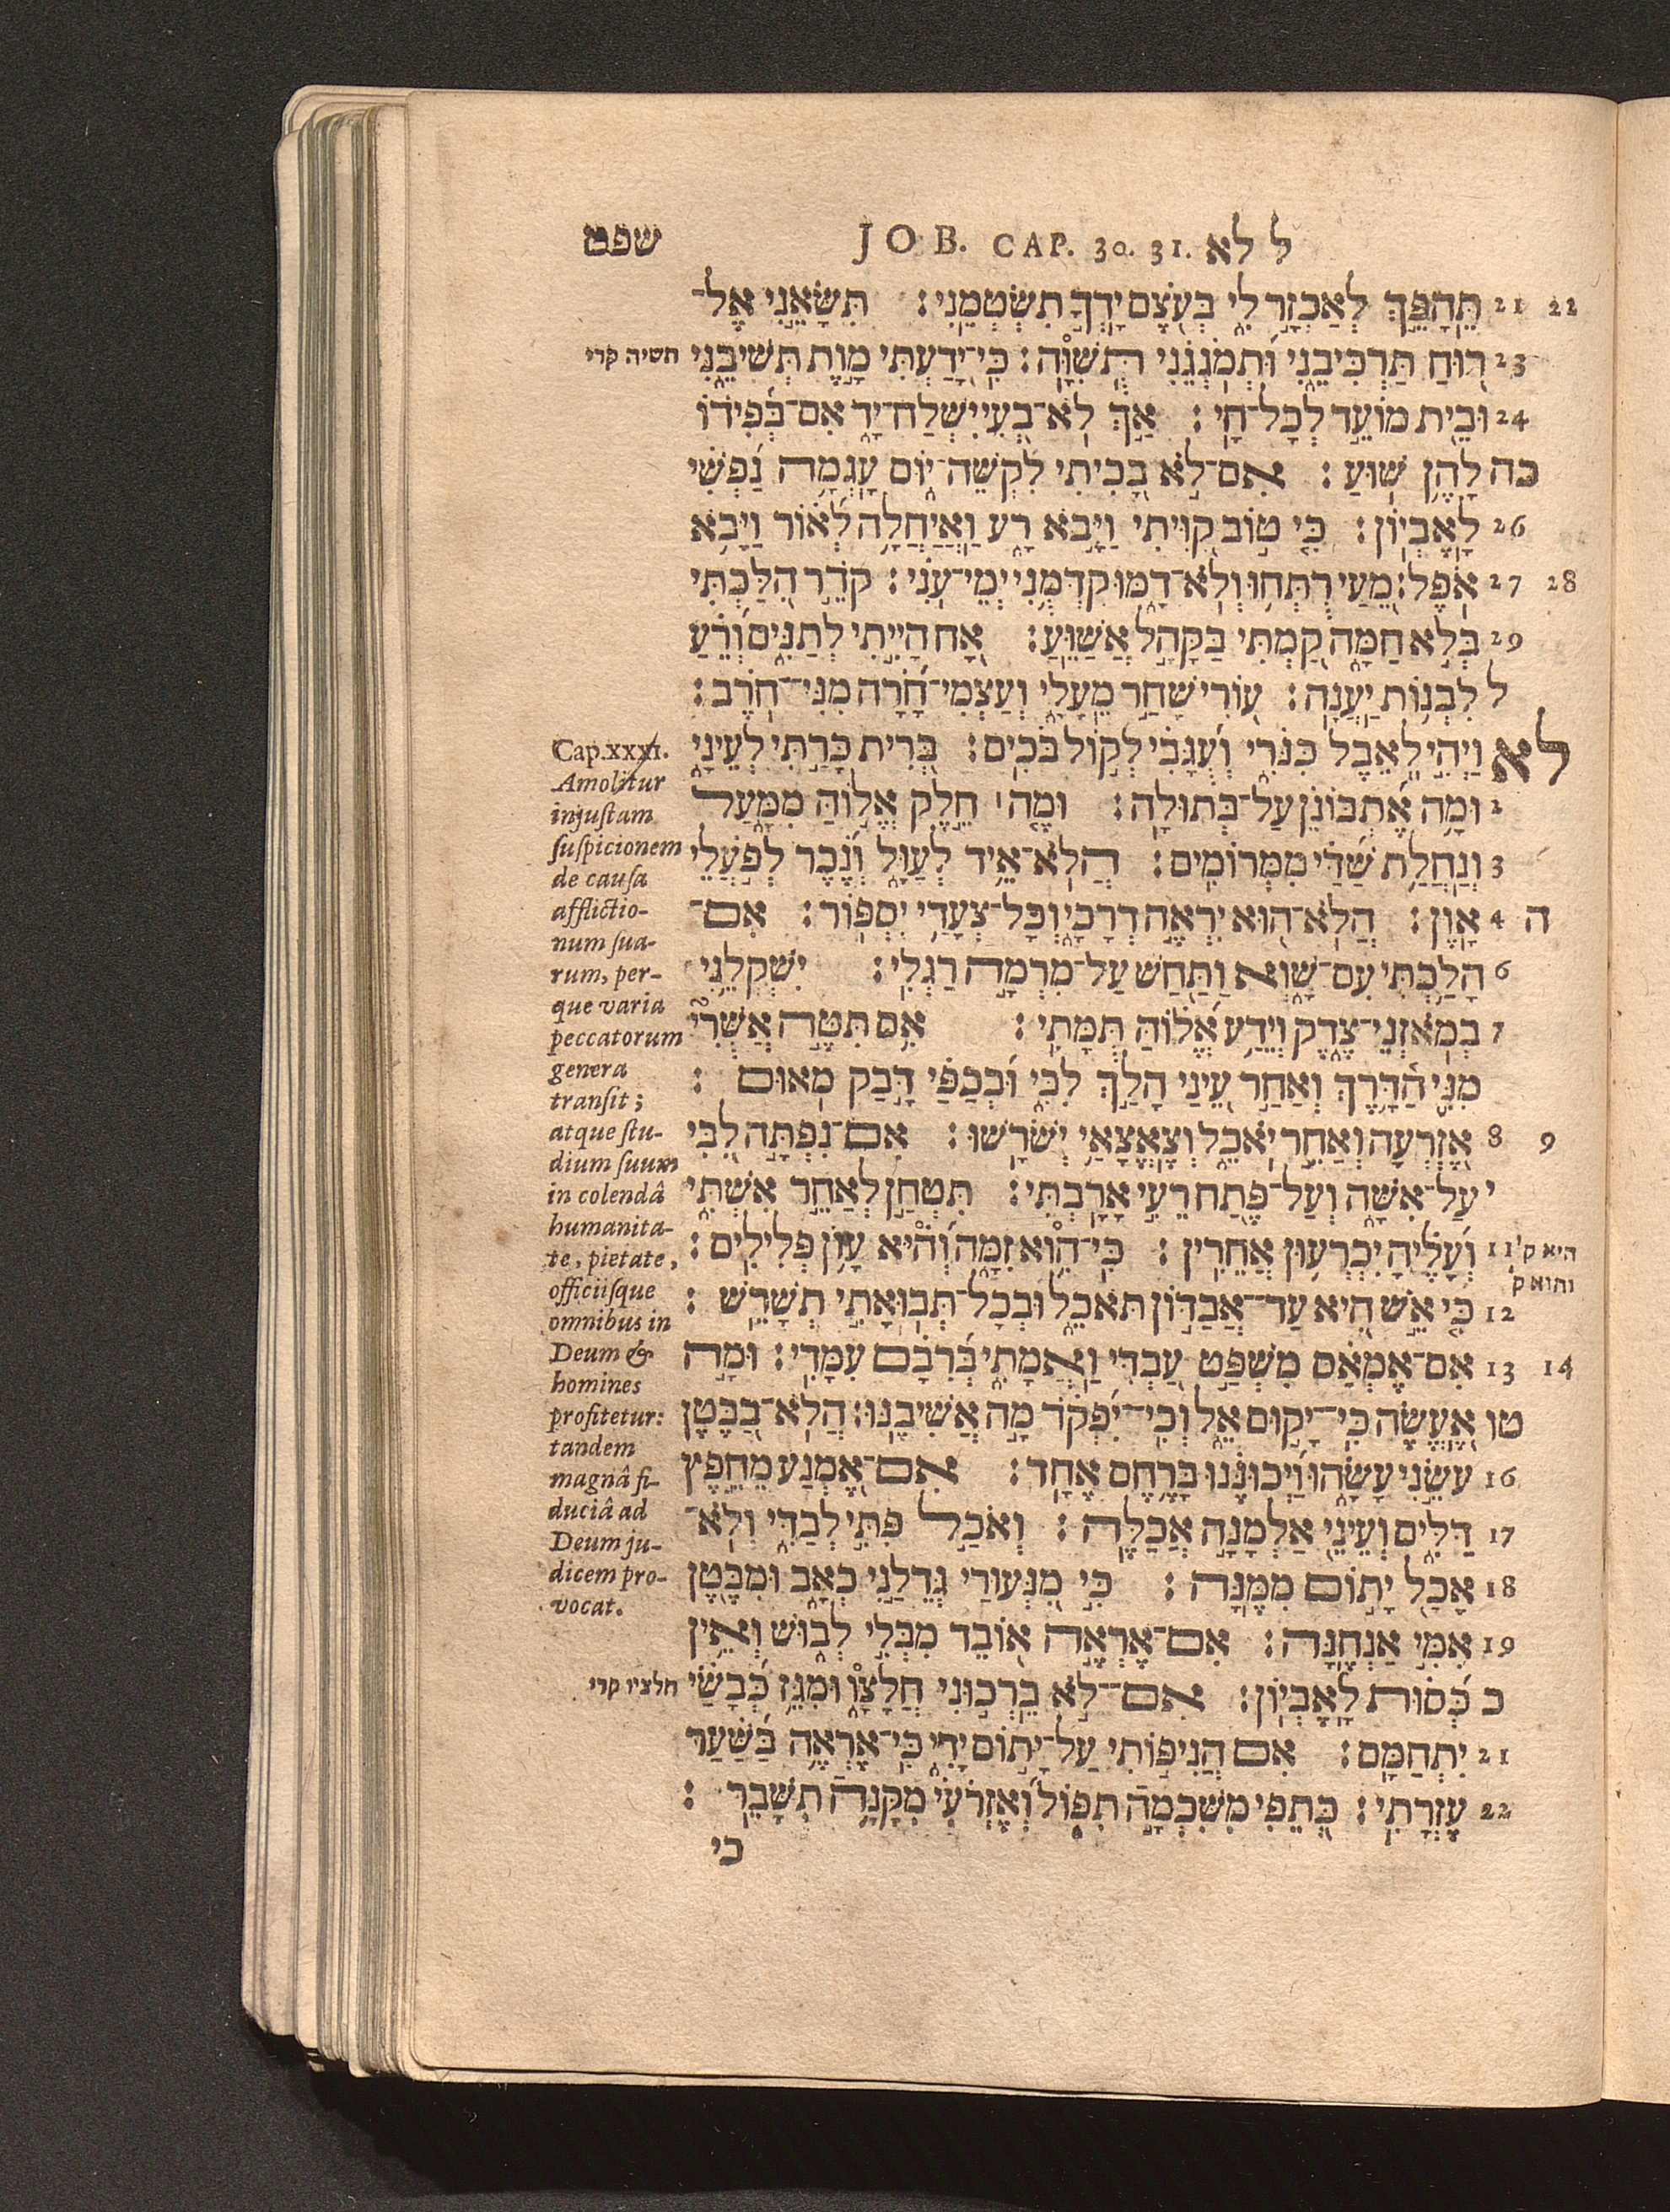 שפט JOB. CAP. 30. 31. ל לא
22 21 תֵּהָפֵךְ לְאַכְזָר לִי בְּעֹצֶם יָדְךָ תִשְׂטְמֵנִי׃ תִּשָּׂאֵנִי אֶל־
23 רוּחַ תַּרְכִּיבֵנִי וּתְמֹגְגֵנִי תְּשִׁוָּה׃ כִּי־יָדַעְתִּי מָוֶת תְּשִׁיבֵנִי
24 וּבֵית מוֹעֵד לְכָל־חָי׃ אַךְ לֹא־בְעִי יִשְׁלַח־יָד אִם־בְּפִידוֹ
כה לָהֶן שׁוּעַ׃ אִם־לֹא בָכִיתִי לִקְשֵׁה־יוֹם עָגְמָה נַפְשִׁי
26 לָאֶבְיוֹן׃ כִּי טוֹב קִוִּיתִי וַיָּבֹא רָע וַאֲיַחֲלָה לְאוֹר וַיָּבֹא
28 27 אֹפֶל׃ מֵעַי רֻתְּחוּ וְלֹא־דָמּוּ קִדְּמֻנִי יְמֵי־עֹנִי׃ קֹדֵר הִלַּכְתִּי
29 בְּלֹא חַמָּה קַמְתִּי בַקָּהָל אֲשַׁוֵּעַ׃ אָח הָיִיתִי לְתַנִּים וְרֵעַ
ל לִבְנוֹת יַעֲנָה׃ עוֹרִי שָׁחַר מֵעָלָי וְעַצְמִי־חָרָה מִנִּי־חֹרֶב׃
לא וַיְהִי לְאֵבֶל כִּנֹּרִי וְעֻגָבִי לְקוֹל בֹּכִים׃ בְּרִית כָּרַתִּי לְעֵינָי
2 וּמָה אֶתְבּוֹנֵן עַל־בְּתוּלָה׃ וּמֶה ׀ חֵלֶק אֱלוֹהַּ מִמָּעַל
3 וְנַחֲלַת שַׁדַּי מִמְּרוֹמִים׃ הֲלֹא־אֵיד לְעַוָּל וְנֵכֶר לְפֹעֲלֵי
ה 4 אָוֶן׃ הֲלֹא־הוּא יִרְאֶה דְרָכָי וְכָל־צְעָדַי יִסְפּוֹר׃ אִם־
6 הָלַכְתִּי עִם־שָׁוְא וַתַּחַשׁ עַל־מִרְמָה רַגְלִי׃ יִשְׁקְלֵנִי
7 בְמֹאזְנֵי־צֶדֶק וְיֵדַע אֱלוֹהַּ תֻּמָּתִי׃ אִם תִּטֶּה אַשֻּׁרִי
מִנִּי הַדָּרֶךְ וְאַחַר עֵינַי הָלַךְ לִבִּי וּבְכַפַּי דָּבַק מְאוּם׃
9 8 אֶזְרְעָה וְאַחֵר יֹאכֵל וְצֶאֱצָאַי יְשֹׁרָשׁוּ׃ אִם־נִפְתָּה לִבִּי
י עַל־אִשָּׁה וְעַל־פֶּתַח רֵעִי אָרָבְתִּי׃ תִּטְחַן לְאַחֵר אִשְׁתִּי
11 וְעָלֶיהָ יִכְרְעוּן אֲחֵרִין׃ כִּי־הִוא זִמָּה וְהִיא עָוֹן פְּלִילִים׃
12 כִּי אֵשׁ הִיא עַד־אֲבַדּוֹן תֹּאכֵל וּבְכָל־תְּבוּאָתִי תְשָׁרֵשׁ׃
14 13 אִם־אֶמְאַס מִשְׁפַּט עַבְדִּי וַאֲמָתִי בְּרִבָם עִמָּדִי׃ וּמָה
טו אֶעֱשֶׂה כִּי־יָקוּם אֵל וְכִי־יִפְקֹד מָה אֲשִׁיבֶנּוּ׃ הֲלֹא־בַבֶּטֶן
16 עֹשֵׂנִי עָשָׂהוּ וַיְכוּנֶנּוּ בָּרֶחֶם אֶחָד׃ אִם־אֶמְנַע מֵחֵפֶץ
17 דַּלִּים וְעֵינֵי אַלְמָנָה אֲכַלֶּה׃ וְאֹכַל פִּתִּי לְבַדִּי וְלֹא־
18 אָכַל יָתוֹם מִמֶּנָּה׃ כִּי מִנְּעוּרַי גְּדֵלַנִי כְאָב וּמִבֶּטֶן
19 אִמִּי אַנְחֶנָּה׃ אִם־אֶרְאֶה אוֹבֵד מִבְּלִי לְבוּשׁ וְאֵין
כ כְּסוּת לָאֶבְיוֹן׃ אִם־לֹא בֵרְכוּנִי חֲלָצָו וּמִגֵּז כְּבָשַׂי
21 יִתְחַמָּם׃ אִם הֲנִיפוֹתִי עַל־יָתוֹם יָדִי כִּי־אֶרְאֶה בַשַּׁעַר
22 עֶזְרָתִי׃ כְּתֵפִי מִשִּׁכְמָה תִפּוֹל וְאֶזְרֹעִי מִקָּנָה תִשָּׁבֵר׃
כי
תשיה קרי
Cap.xxxi.
Amolitur
injustam
suspicionem
de causa
afflictio-
num sua-
rum, per-
que varia
peccatorum
genera
transit;
atque stu-
dium suum
in colendâ
humanita-
te, pietate,
officiisque
omnibus in
Deum &
homines
profitetur:
tandem
magnâ fi-
duciâ ad
Deum ju-
dicem pro-
vocat.
חלציו קרי
היא ק'
והוא ק